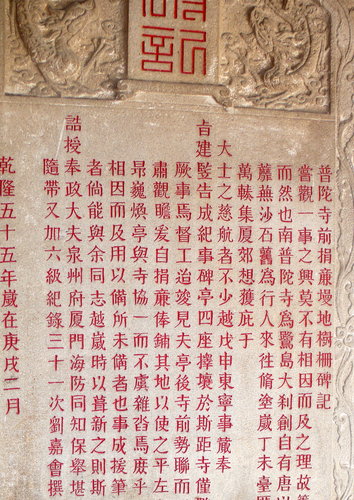 普陀寺前捐廉墁地樹柵碑記
嘗觀一事之興莫不有相因而及之理故善
而然也南普陀寺為鷺島大刹創自有唐以
蘼蕪沙石舊為行人來往脩塗歲丁未臺匪
萬軼集厦郊想獲庇于
大士之慈航者不少越戊申東寧事蕆奉
旨建豎告成紀事碑亭四座擇壤於斯距寺僅
厥事焉督工迨竣見夫亭後寺前勢聯而
肅觀瞻爰自捐廉俸鋪其地以使之平左
昂巍煥亭與寺協一而不虞雜沓焉庶乎
相因而及用以備所未備者也事成援筆
者倘能與余同志越歲時以葺新之則斯
誥授奉政大夫泉州府厦門海防同知保舉堪
隨帶又加六級紀錄三十一次劉嘉會撰
乾隆五十五年歲在庚戌二月